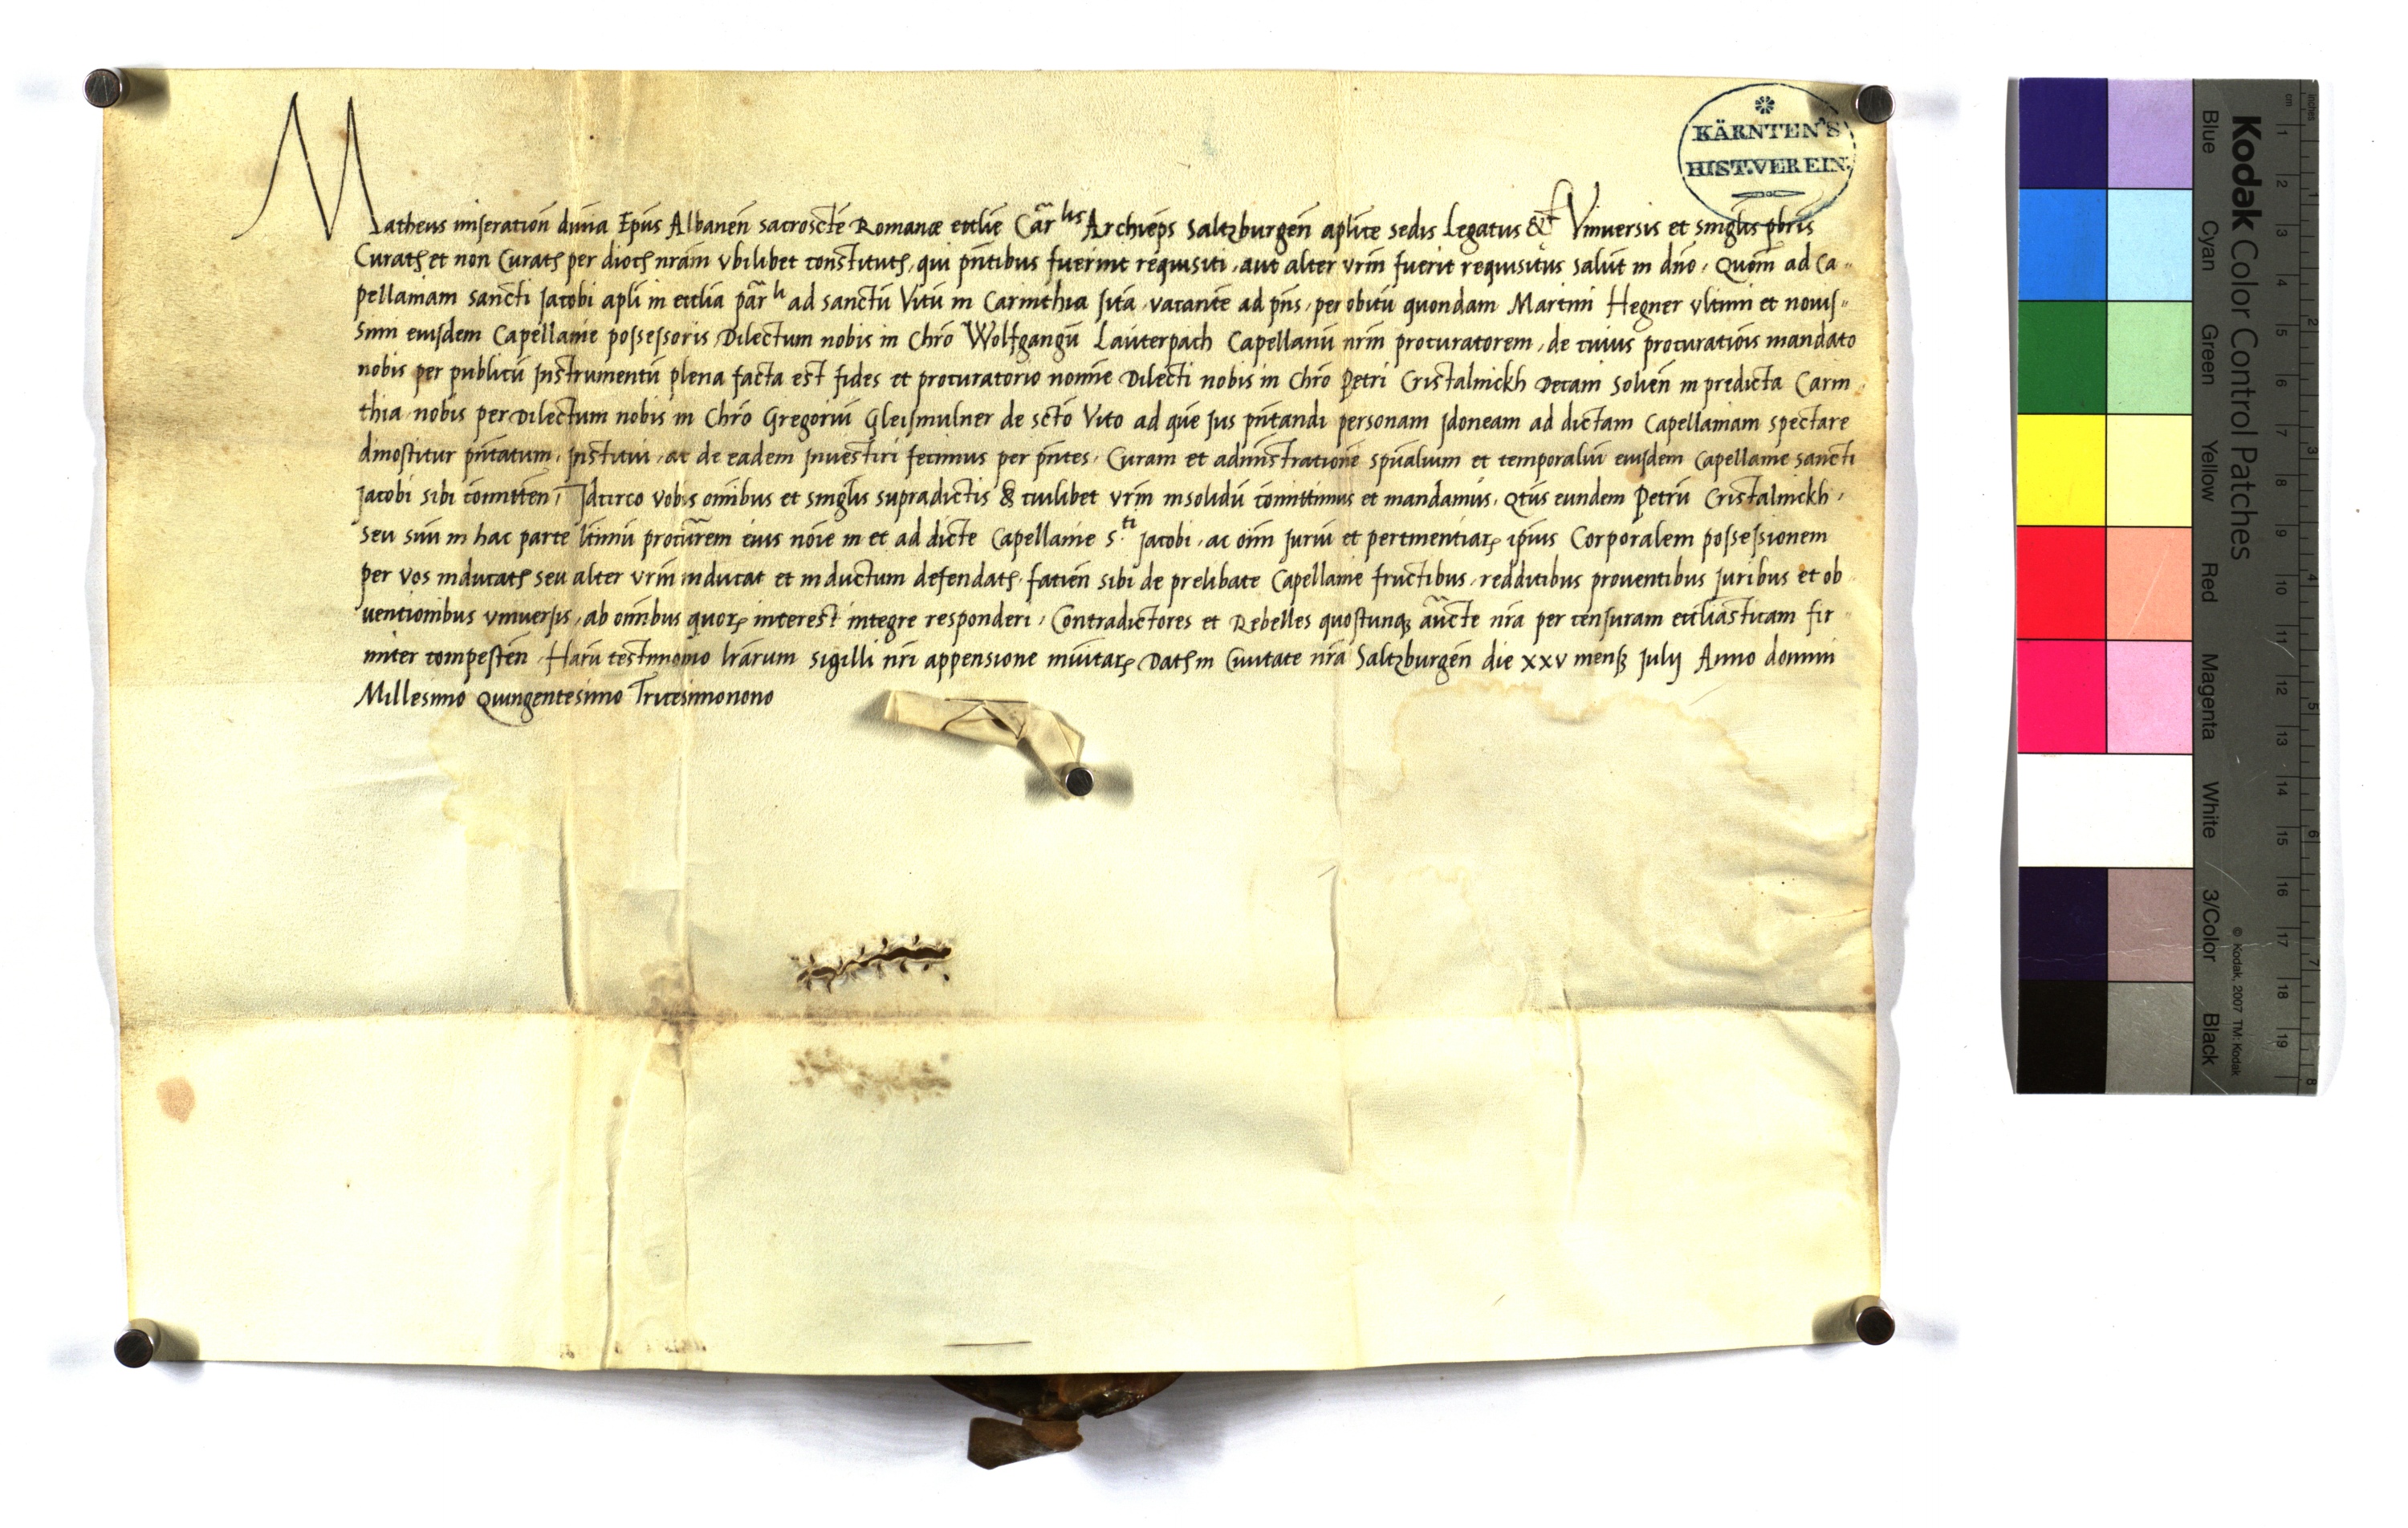 KÄRNTEN'S
HIST.VEREIN.
Matheus miseration̄ diuīa Ep̄us Albaneñ sacroscte Romanæ eccl̄ie Car̄lis Archiep̄s Saltzburgeñ apl̄ice sedis Legatus &c Vniuersis et singl̄is pb̄ris
Curatꝭ et non Curatꝭ per diocꝭ nr̄am vbilibet constitutꝭ, qui pn̄tibus fuerint requisiti, aut alter vr̄m fuerit requisitus salūt in dn̄o, Quom̄ ad Ca-
pellaniam sancti Jacobi apl̄i in eccl̄ia par̄li ad sanctū Vitū in Carinthia sita, vacante ad pn̄s, per obitū quondam Martini Hegner vltimi et nouis-
simi eiusdem Capellanie possessoris Dilectum nobis in Chr̄o Wolfgangū Lauterpach Capellanū nr̄m procuratorem, de cuius procurationis mandato
nobis per publicū Instrumentū plena facta est fides et procuratorio noīe Dilecti nobis in Chr̄o Petri Cristalnickh Decani Solieñ in predicta Carin-
thia nobis per Dilectum nobis in Chr̄o Gregoriū Gleismulner de sct̄o Vito ad quē Jus pn̄tandi personam Idoneam ad dictam Capellaniam spectare
dinoscitur pn̄tatum, Institui, ac de eadem Inuestiri fecimus per pn̄tes, Curam et administrationē spūalium et temporaliū eiusdem Capellanie sancti
Jacobi sibi com̄itten̄, Idcirco vobis om̄ibus et singl̄is supradictis & cuilibet vr̄m insolidū com̄ittimus et mandamus, Qtūs eundem Petrū Cristalnickh,
seu suū in hac parte l̄timū procūrem eius noīe in et ad dicte Capellanie S.ti Jacobi, ac oīm Juriū et pertinentiarꝝ ip̄ius Corporalem possessionem
per vos inducatꝭ seu alter vr̄m inducat et inductum defendatꝭ, facien̄ sibi de prelibate Capellanie fructibus, redditibus prouentibus Juribus et ob-
uentionibus vniuersis, ab om̄ibus quorꝝ interest integre responderi, Contradictores et Rebelles quoscunqꝫ auc̄te nr̄a per censuram eccl̄iasticam fir-
miter compescen̄, Harū testimonio lr̄arum sigilli nr̄i appensione munitarꝝ Datꝭ in Ciuitate nr̄a Saltzburgeñ die xxv mensꝭ Julij Anno domini
Millesimo Quingentesimo Tricesimonono
Kodak Color Control Patches
Blue Cyan Green Yellow Red Magenta White 3/Color Black
© Kodak, 2007 TM: Kodak
cm 1 2 3 4 5 6 7 8 9 10 11 12 13 14 15 16 17 18 19
inches 1 2 3 4 5 6 7 8